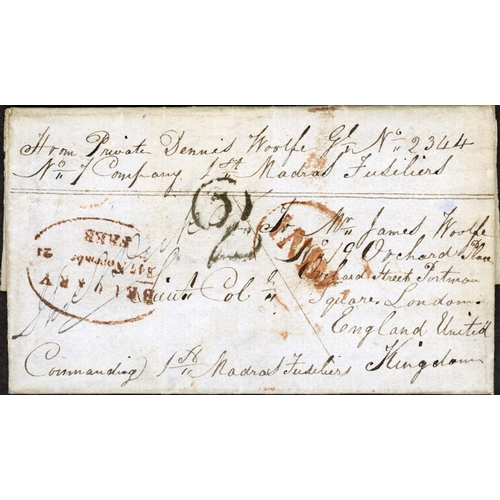 From Private Dennis Woolfe Gl. No 2344
No 7 Company 1st Madras Fusiliers
To Mr James Woolfe
No 9 Orchard Place
Orchard Street Portman
Square, London
England United
Kingdom
Lieut Col
Commanding 1st Madras Fusiliers
2
BELLARY
Novembe
PAID
INDIA